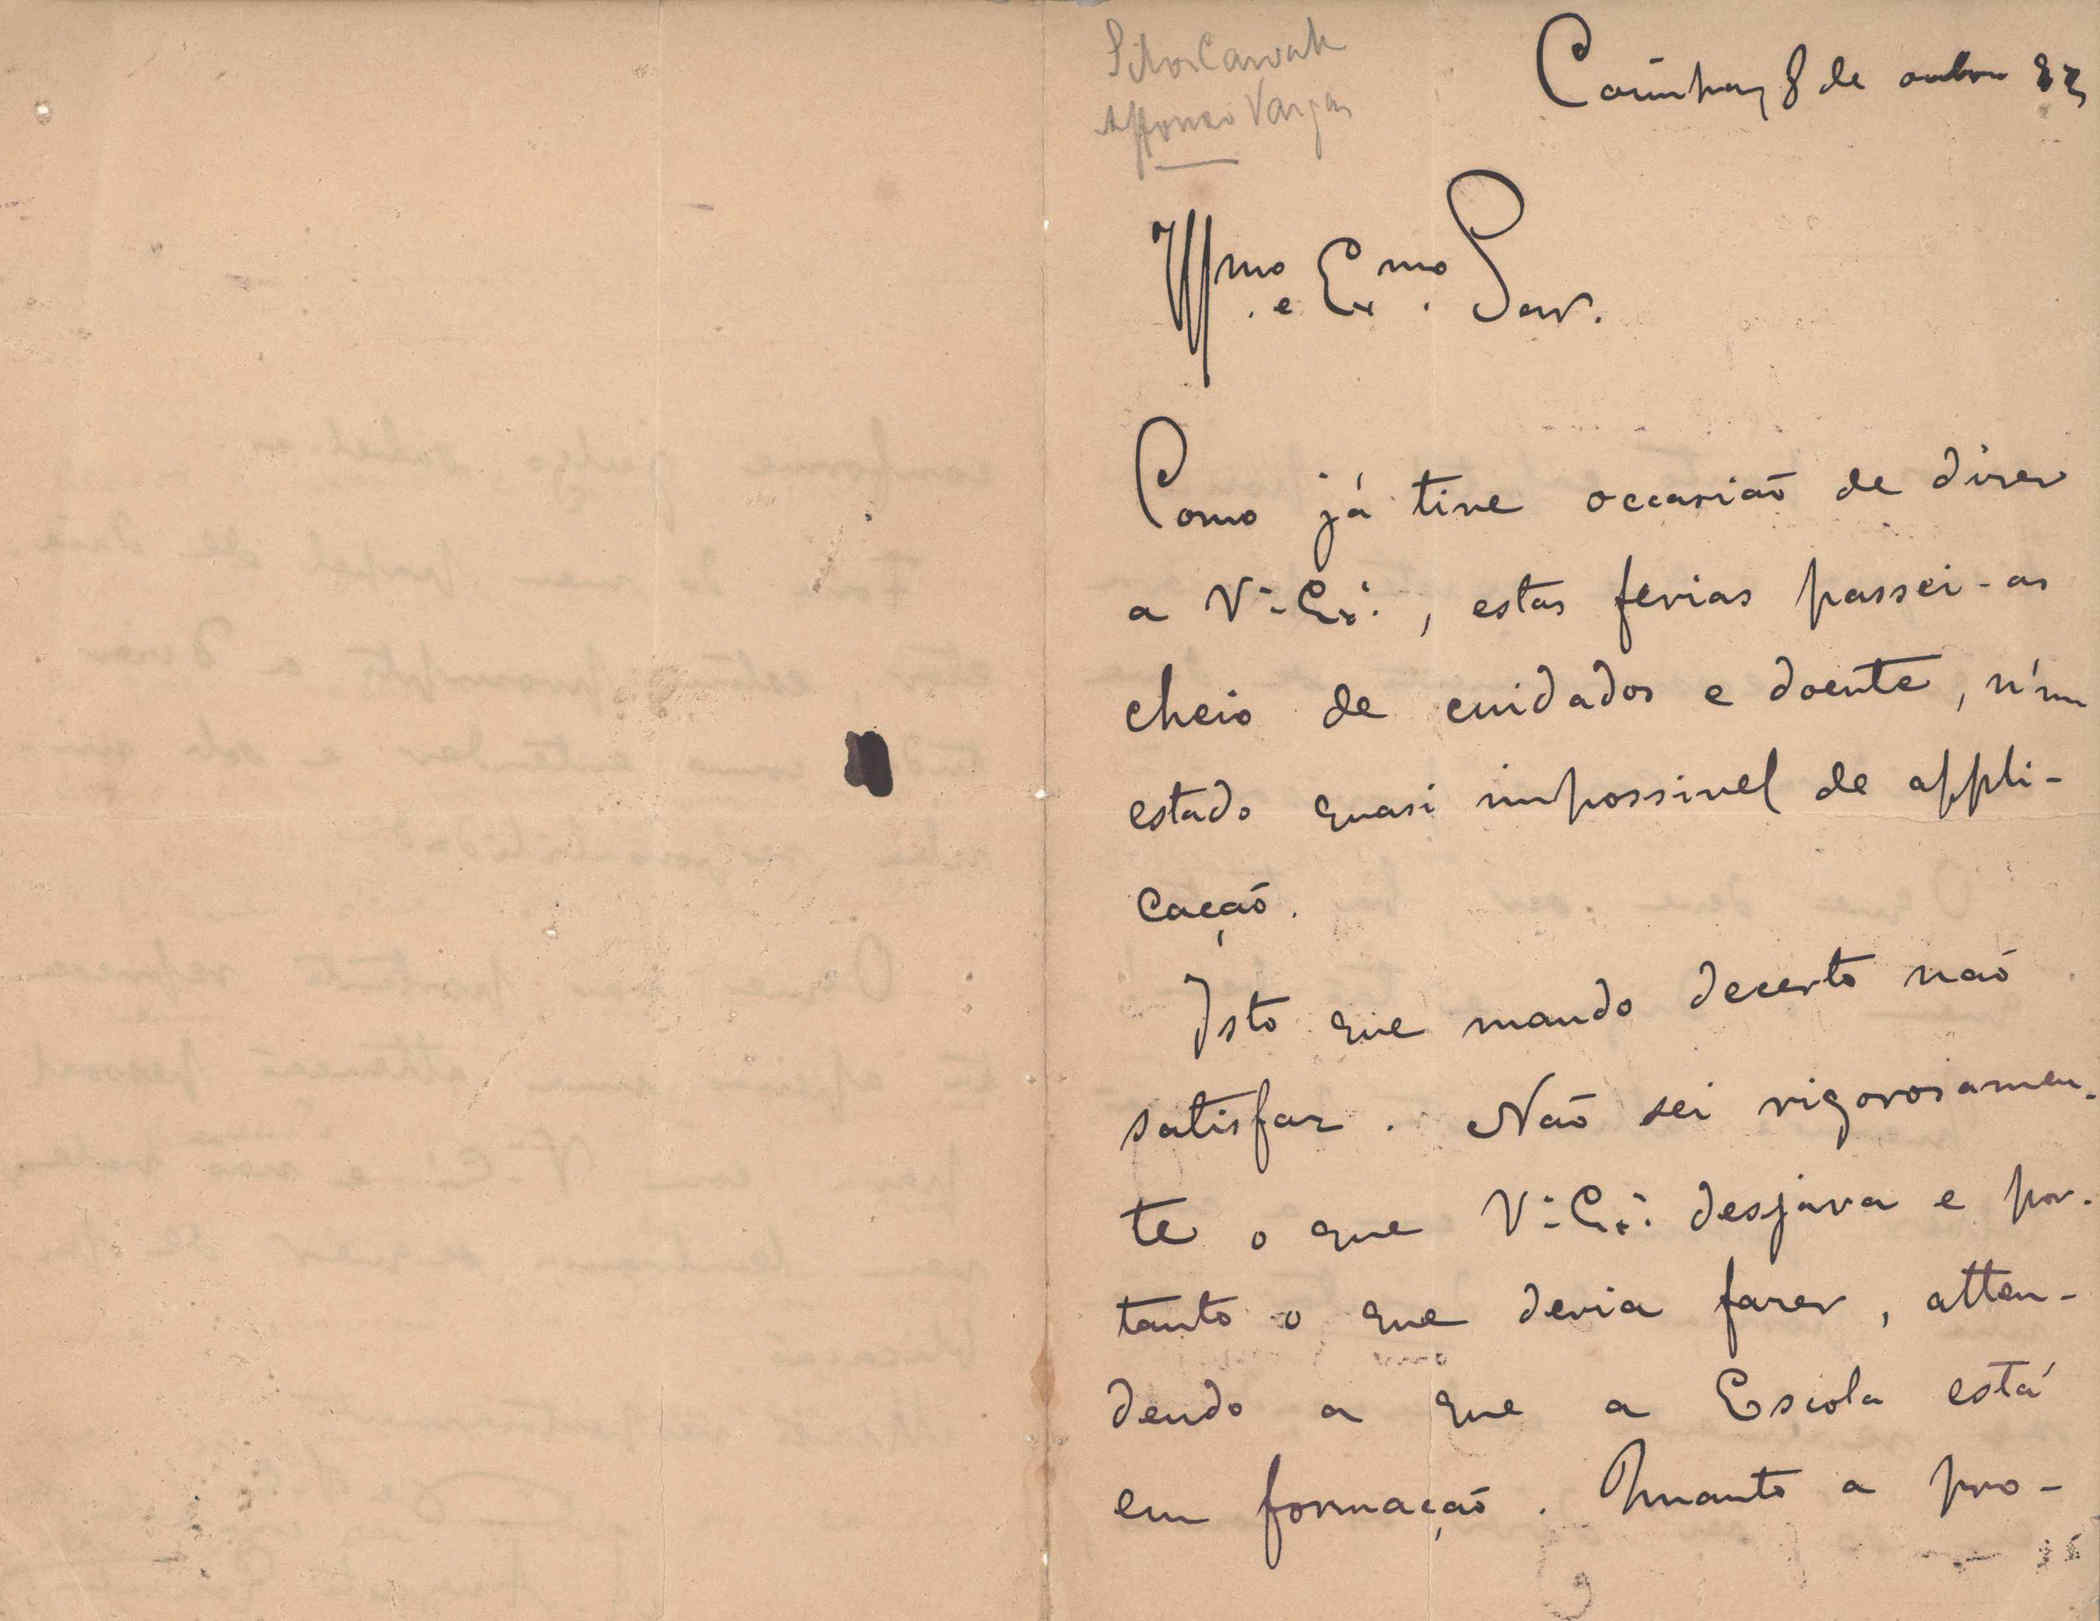 Affonso Vargas
8 de outubro
Illmo. e Exmo. Snr.
Como já tive occasião de dizer
a V.ª Ex.ª, estas ferias passei-as
cheio de cuidados e doente, n'um
estado quasi impossivel de appli-
cação.
Isto que mando decerto não
satisfaz. Não sei rigorosamen-
te o que V.ª Ex.ª desejava e por-
tanto o que devia fazer, atten-
dendo a que a Escola está
em formação. Quanto a pro-